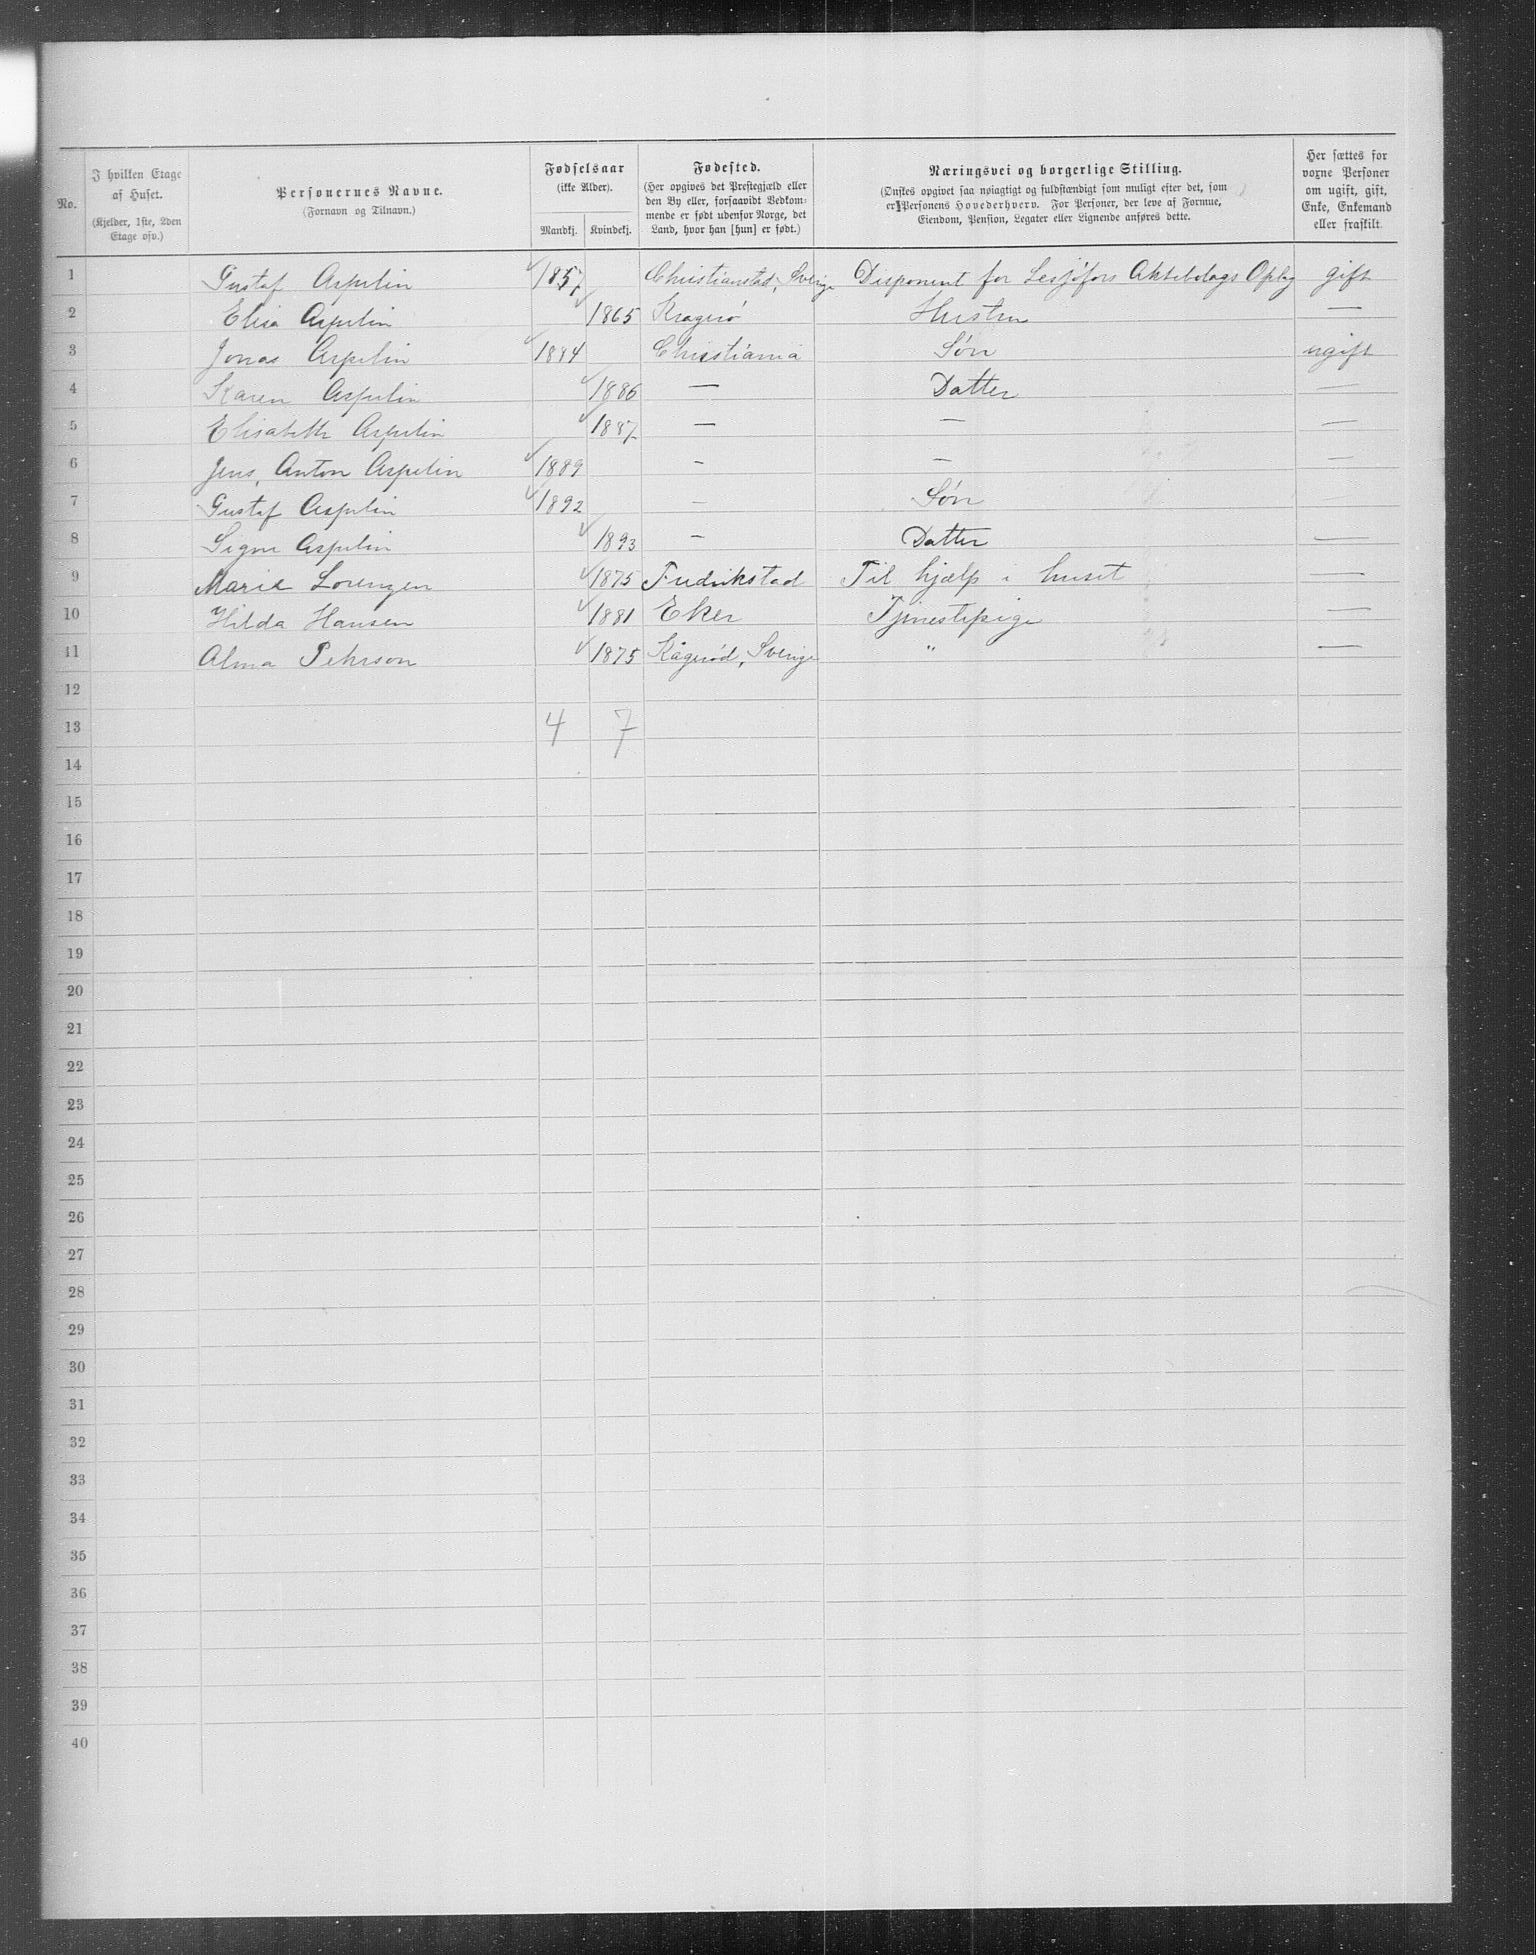 No.
I hvilken Etage af Huset.
(Kjelder, 1ste, 2den Etage osv.)
Personernes Navne.
(Fornavn og Tilnavn.)
Fødselsaar
(ikke Alder).
Mandkj. Kvindekj.
Fødested.
(Her opgives det Prestegjæld eller
den By eller, forsaavidt Vedkom-
mende er født udenfor Norge, det
Land, hvor han [hun] er født.)
Næringsvei og borgerlige Stilling.
(Ønskes opgivet saa nøiagtigt og fuldstændigt som muligt efter det, som
er Personens Hovederhverv. For Personer, der leve af Formue,
Eiendom, Pension, Legater eller Lignende anføres dette.
Her sættes for
voxne Personer
om ugift, gift,
Enke, Enkemand
eller fraskilt.
1 Gustaf Aspelin 1857 Christianstad, Sverige Disponent for Lesjöfors Aktiebolags Oplag gift
2 Elisa Aspelin 1865 Kragerø Hustru —
3 Jonas Aspelin 1884 Christiania Søn ugift
4 Karen Aspelin 1886 — Datter —
5 Elisabeth Aspelin 1887 — — —
6 Jens, Anton Aspelin 1889 - — —
7 Gustaf Aspelin 1892 - Søn —
8 Signe Aspelin 1893 - Datter —
9 Marie Lorenzen 1875 Fredrikstad Til hjælp i huset —
10 Hilda Hansen 1881 Eker Tjenestepige —
11 Alma Pehrson 1875 Kågerød, Sverige " —
12
13 4 7
14
15
16
17
18
19
20
21
22
23
24
25
26
27
28
29
30
31
32
33
34
35
36
37
38
39
40